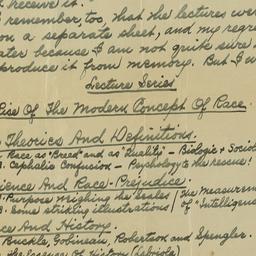 receive it."
remember, too, that the lectures we
on a separate sheet, and my regre
ater because I am not quite sure
produce it from memory. But I w
Lecture Series
Rise Of The Modern Concept Of Race.
Theories And Definitions.
Race as "Breed" and as "Quality" - Biologic & Sociol
Cephalic Confusion - Psychology to the rescue!
ience And Race-Prejudice.
Purpose weighing the scales / The Measurem
Some striking illustrations / of "Intelligenc
ce And History.
Buckle, Gobineau, Robertson and Spengler.
The Essence Of History (Labriola)